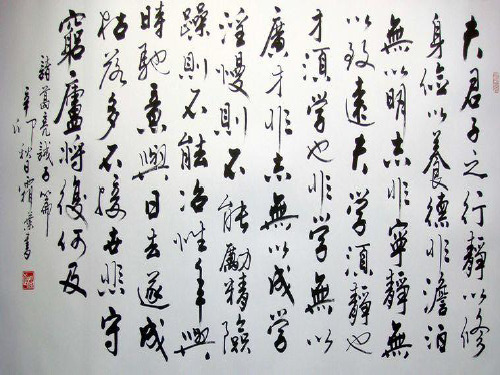 夫君子之行靜以修
身儉以養德非澹泊
無以明志非寧靜無
以致遠夫學須靜也
才須學也非學無以
廣才非志無以成學
淫慢則不能勵精險
躁則不能冶性年與
時馳意與日去遂成
枯落多不接世悲守
窮廬將復何及
諸葛亮誡子篇
辛卯秋日霜葉書